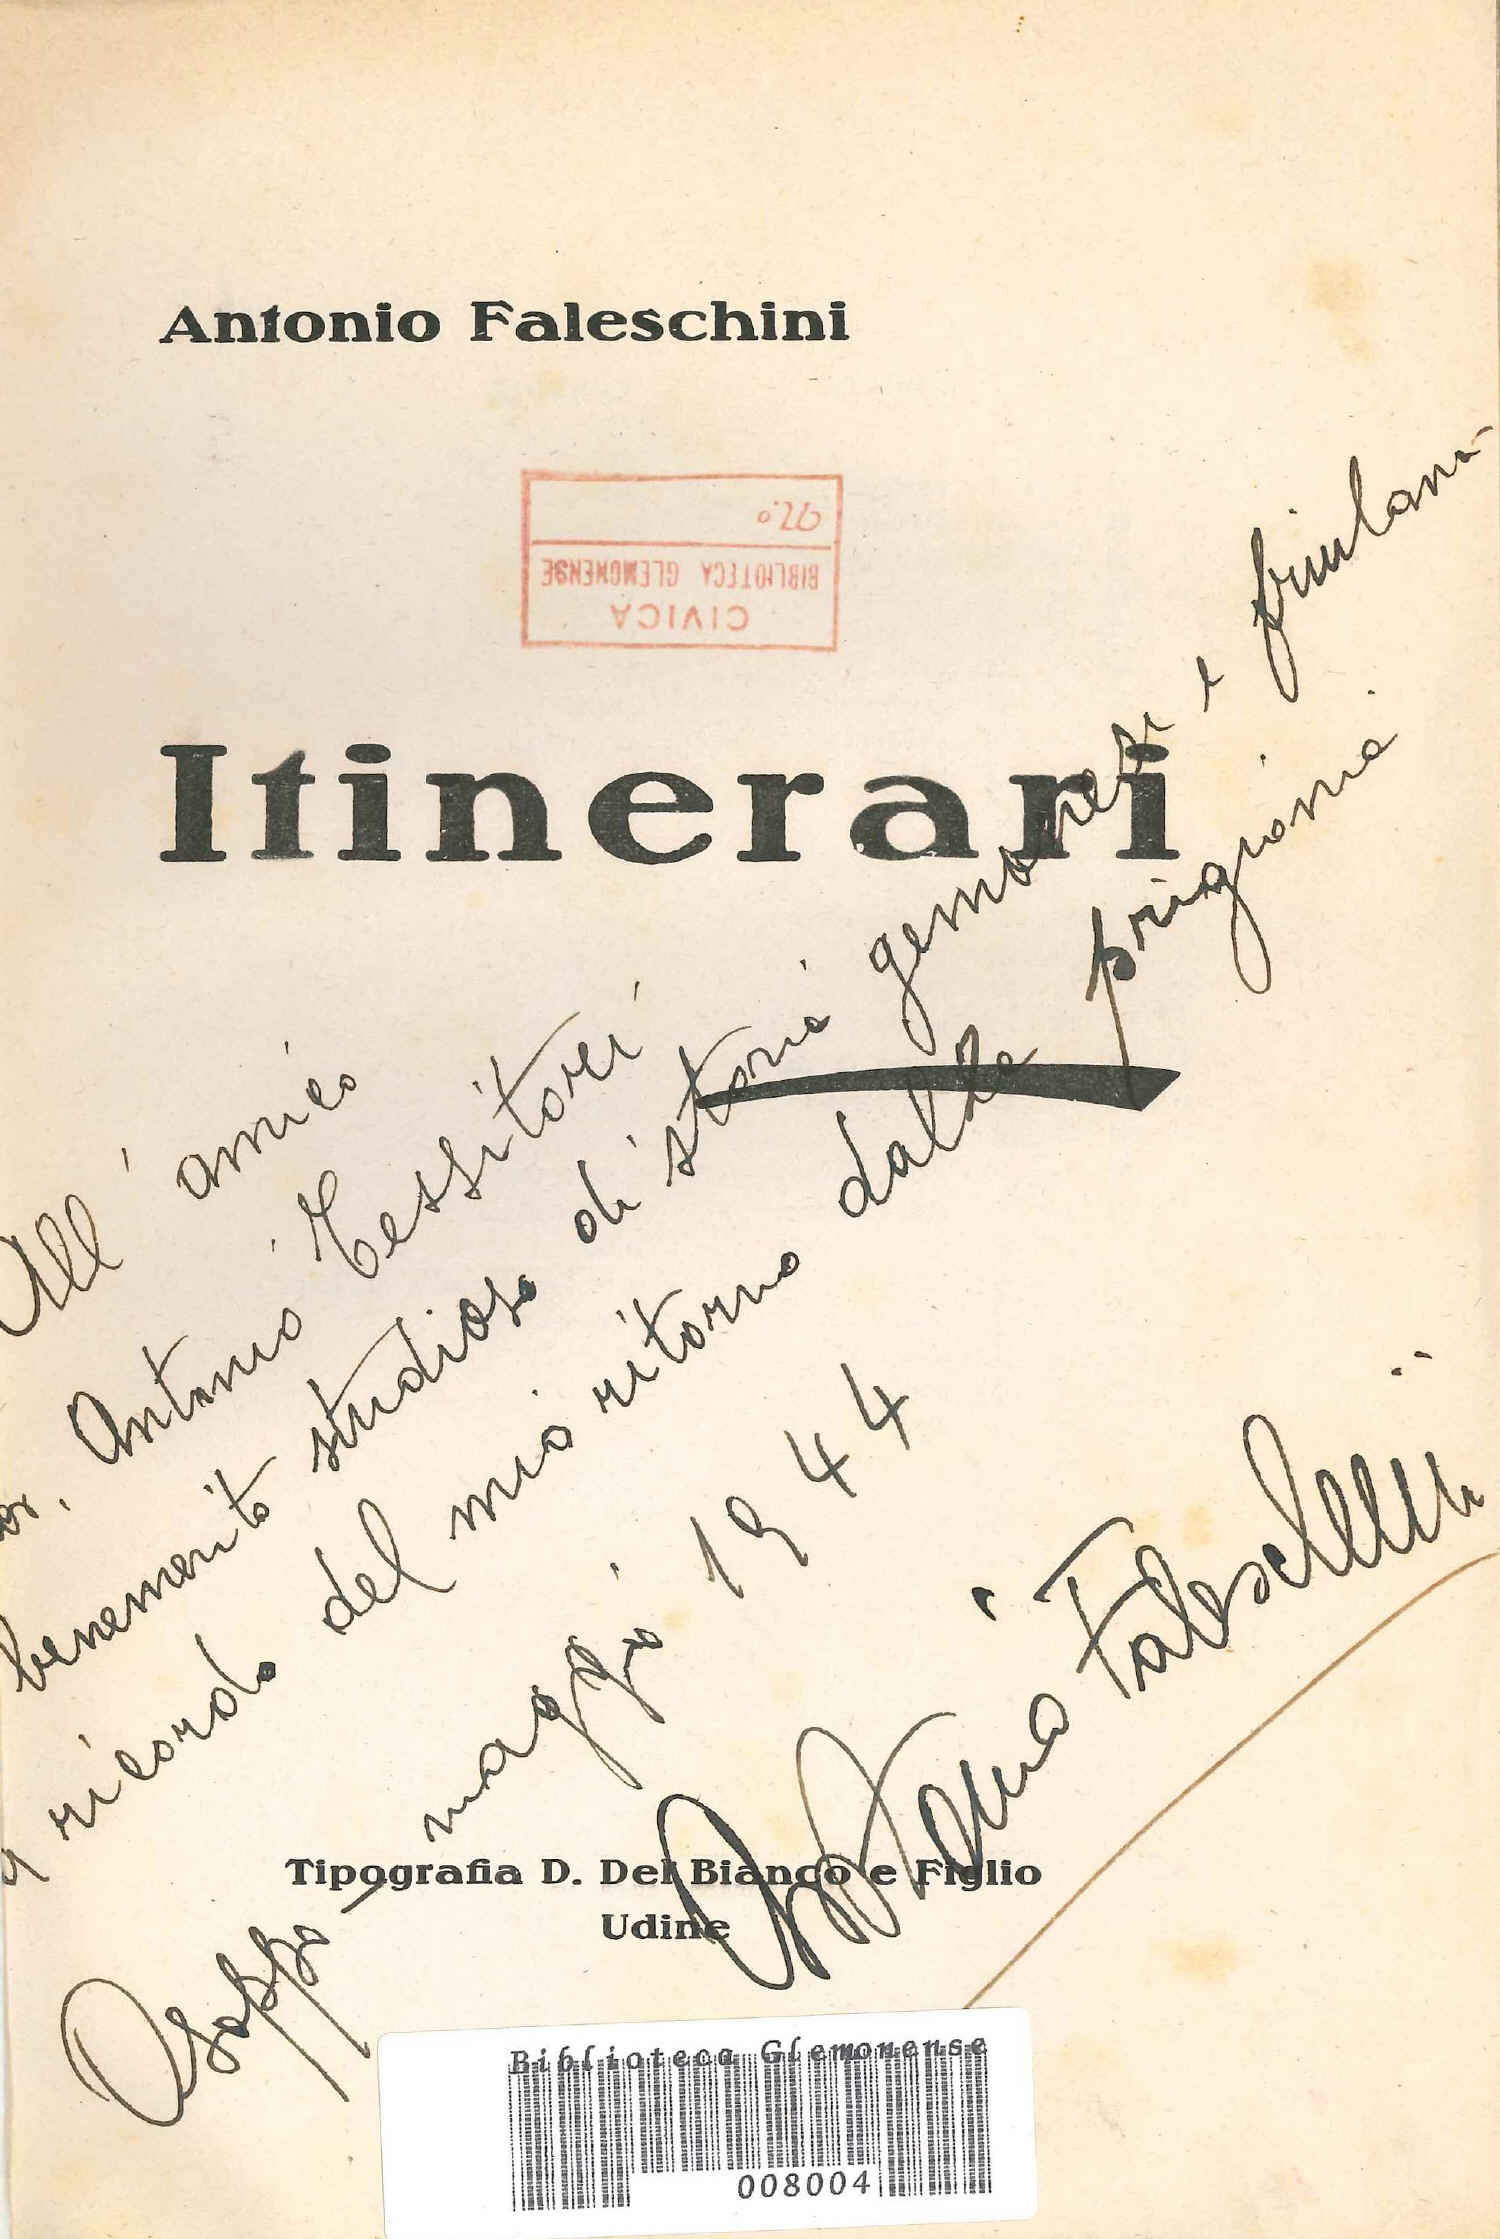 Antonio Faleschini
CIVICA
BIBLIOTECA GLEMONENSE
Itinerari
All'amico
Antonio Tessitori
benemerito studioso di storia gemonese e friulana
ricordo del mio ritorno dalla prigionia
Osoppo - maggio 1944
Antonio Faleschini
Tipografia D. Del Bianco e Figlio
Udine
Biblioteca Glemonense
008004